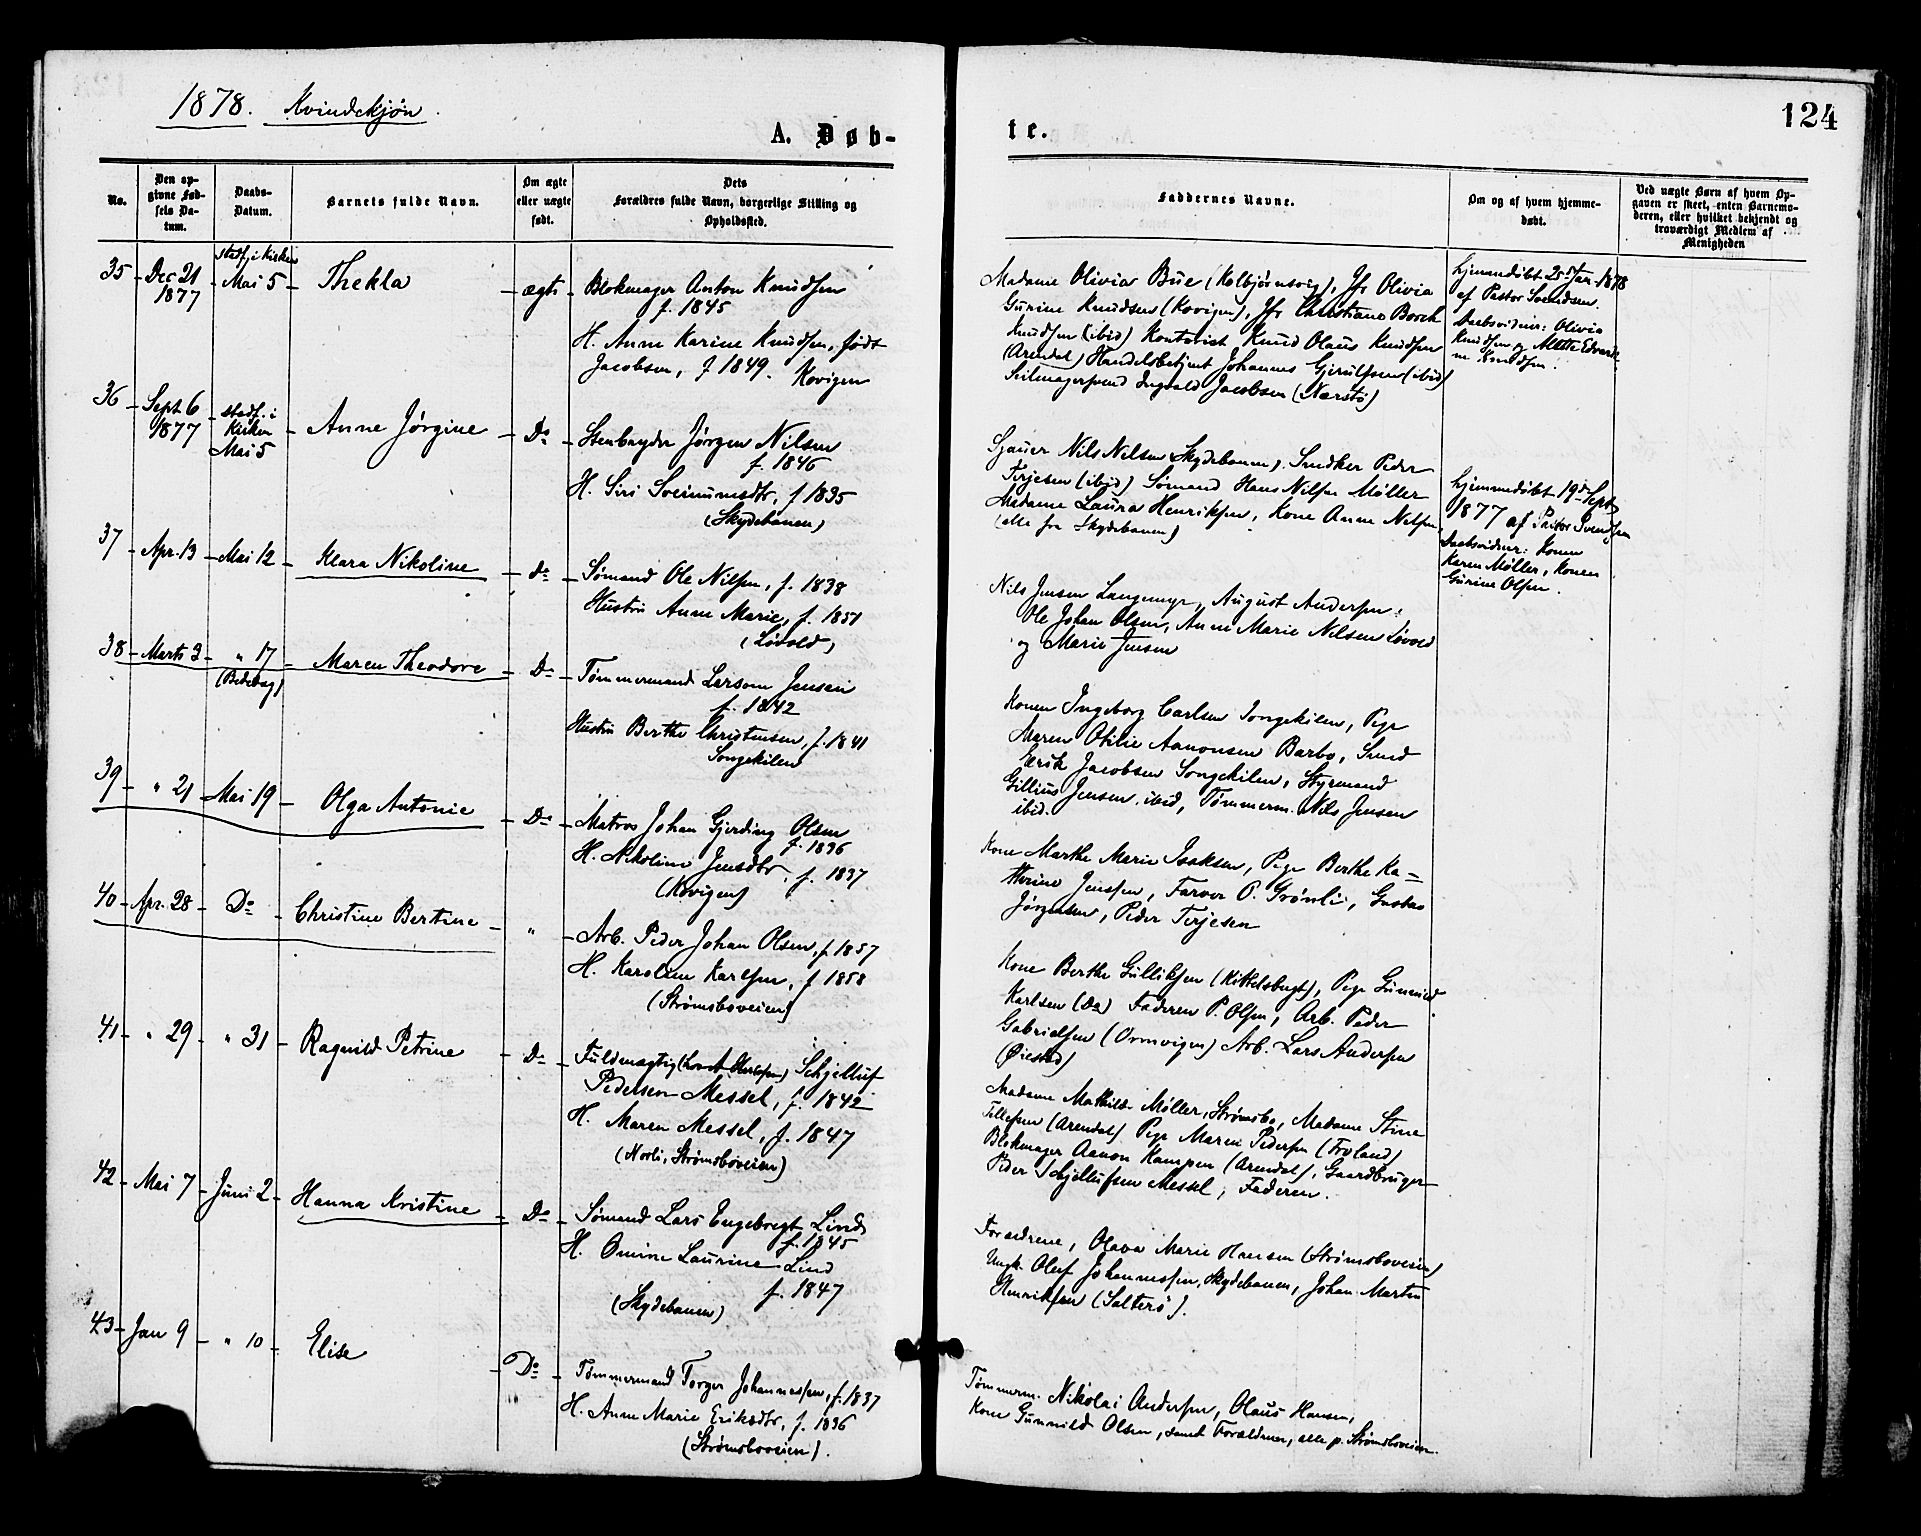 1878. Kvindekjøn.
124
A. Døb-
te.
No.
Den op-
givne Fød-
sels Da-
tum.
Daabs-
Datum.
Barnets fulde Navn.
Om ægte
eller uægte
født.
Dets
Forældres fulde Navn, borgerlige Stilling og
Opholdssted.
Faddernes Navne.
Om og af hvem hjemme-
døbt.
Ved uægte Børn af hvem Op-
gaven er skeet, enten Barnemo-
deren, eller hvilket bekjendt og
troværdigt Medlem af
Menigheden
35 Dec 21 1877
stadf. i Kirken
Mai 5
Thekla
ægte
Blokmager Anton Knudsen
f. 1845
H. Anne Karine Knudsen, født
Jacobsen, f 1849. Kovigen
Madame Olivia Bue (Kolbjørnsvig), Jfr Olivia
Gurine Knudsen (Kovigen), Jfr Christiane Borch
Knudsen (ibid) Kontorist Knud Olaus Knudsen
(Arendal) Handelsbetjent Johannes Gjerulfsen (ibid)
Seilmagersvend Ingvald Jacobsen (Nærstø)
hjemmedøbt 25de Jan. 1878
af Pastor Svendsen.
Daabsvidner: Olivia
Knudsen og Mette Edvardi-
ne Knudsen.
36 Sept 6 1877
stadf. i
Kirken
Mai 5
Anne Jørgine
Do
Stenbryder Jørgen Nilsen
f. 1846
H. Siri Sveinumsdtr, f 1835
(Skydebanen)
Sjauer Nils Nilsen (Skydebanen), Snedker Peder
Terjesen (ibid) Sømand Hans Nilsen Møller
Madame Laura Henriksen, Kone Anne Nilsen
(alle fra Skydebanen)
hjemmedøbt 19de Sept
1877 af Pastor Svendsen
Daabsvidner: Konen
Karen Møller, Konen
Gurine Olsen.
37 Apr. 13 Mai 12 Klara Nikoline do
Sømand Ole Nilsen, f. 1838
Hustru Anne Marie, f. 1851
(Løvold)
Nils Jensen Langemyr, August Andersen,
Ole Johan Olsen, Anne Marie Nilsen Løvold
og Marie Jensen
38 Marts 3 " 17
(Bedehus)
Maren Theodore Do
Tømmermand Jensen
f. 1842
Hustru Berthe Christensen, f. 1841
Songekilen
Konen Ingeborg Carlsen Songekilen, Pige
Maren Otilie Aanonsen Barbo, Smed
Gerik Jacobsen Songekilen, Styrmand
Gillius Jensen ibid, Tømmerm. Nils Jensen
ibid.
39 " 21 Mai 19 Olga Antonie Do
Matros Johan Gjerding Olsen
f. 1836
H. Nikoline Jensdtr, f. 1837
(Kovigen)
Kone Marthe Marie Isaksen, Pige Berthe Ka-
thrine Jensen, Farver O. Grønlie, Gustav
Jørgensen, Peder Terjesen
40 Apr. 28 Do Christine Bertine "
Arb. Peder Johan Olsen, f. 1857
H. Karoline Karlsen, f 1858
(Strømsboveien)
Kone Berthe Gulliksen (Kittelsbugt), Pige Gunvild
Karlsen (Do) Faderen P. Olsen, Arb. Peder
Gabrielsen (Ormvigen) Arb. Lars Andersen
(Øiestad)
41 " 29 " 31 Ragnild Petrine Do
Fuldmægtig Schjelluf
Pedersen Messel, f. 1842
H. Maren Messel, f. 1847
(Norli, Strømsboveien)
Madame Mathilde Møller, Strømsbo, Madame Stine
Tellefsen (Arendal) Pige Maren Pedersen (Froland)
Blokmager Aanon Kampen (Arendal), Gaardbruger
Peder Schjellufsen Messel, Faderen.
42 Mai 7 Juni 2 Hanna Kristine Do
Sømand Lars Engebregt Lind
f. 1845
H. Omine Laurine Lind
f. 1847
(Skydebanen)
Forældrene, Olava Marie Hansen (Strømsboveien)
Ungk. Oluf Johannessen, Skydebanen, Johan Martin
Henriksen (Salterø).
43 Jan 9 " 10 Elise Do
Tømmermand Torger Johannessen, f. 1837
H. Anne Marie Eriksdtr, f. 1836
(Strømsboveien).
Tømmerm. Nikolai Andersen, Olaus Hansen,
Kone Gunnild Olsen, samt Forældrene, alle p. Strømsboveien.